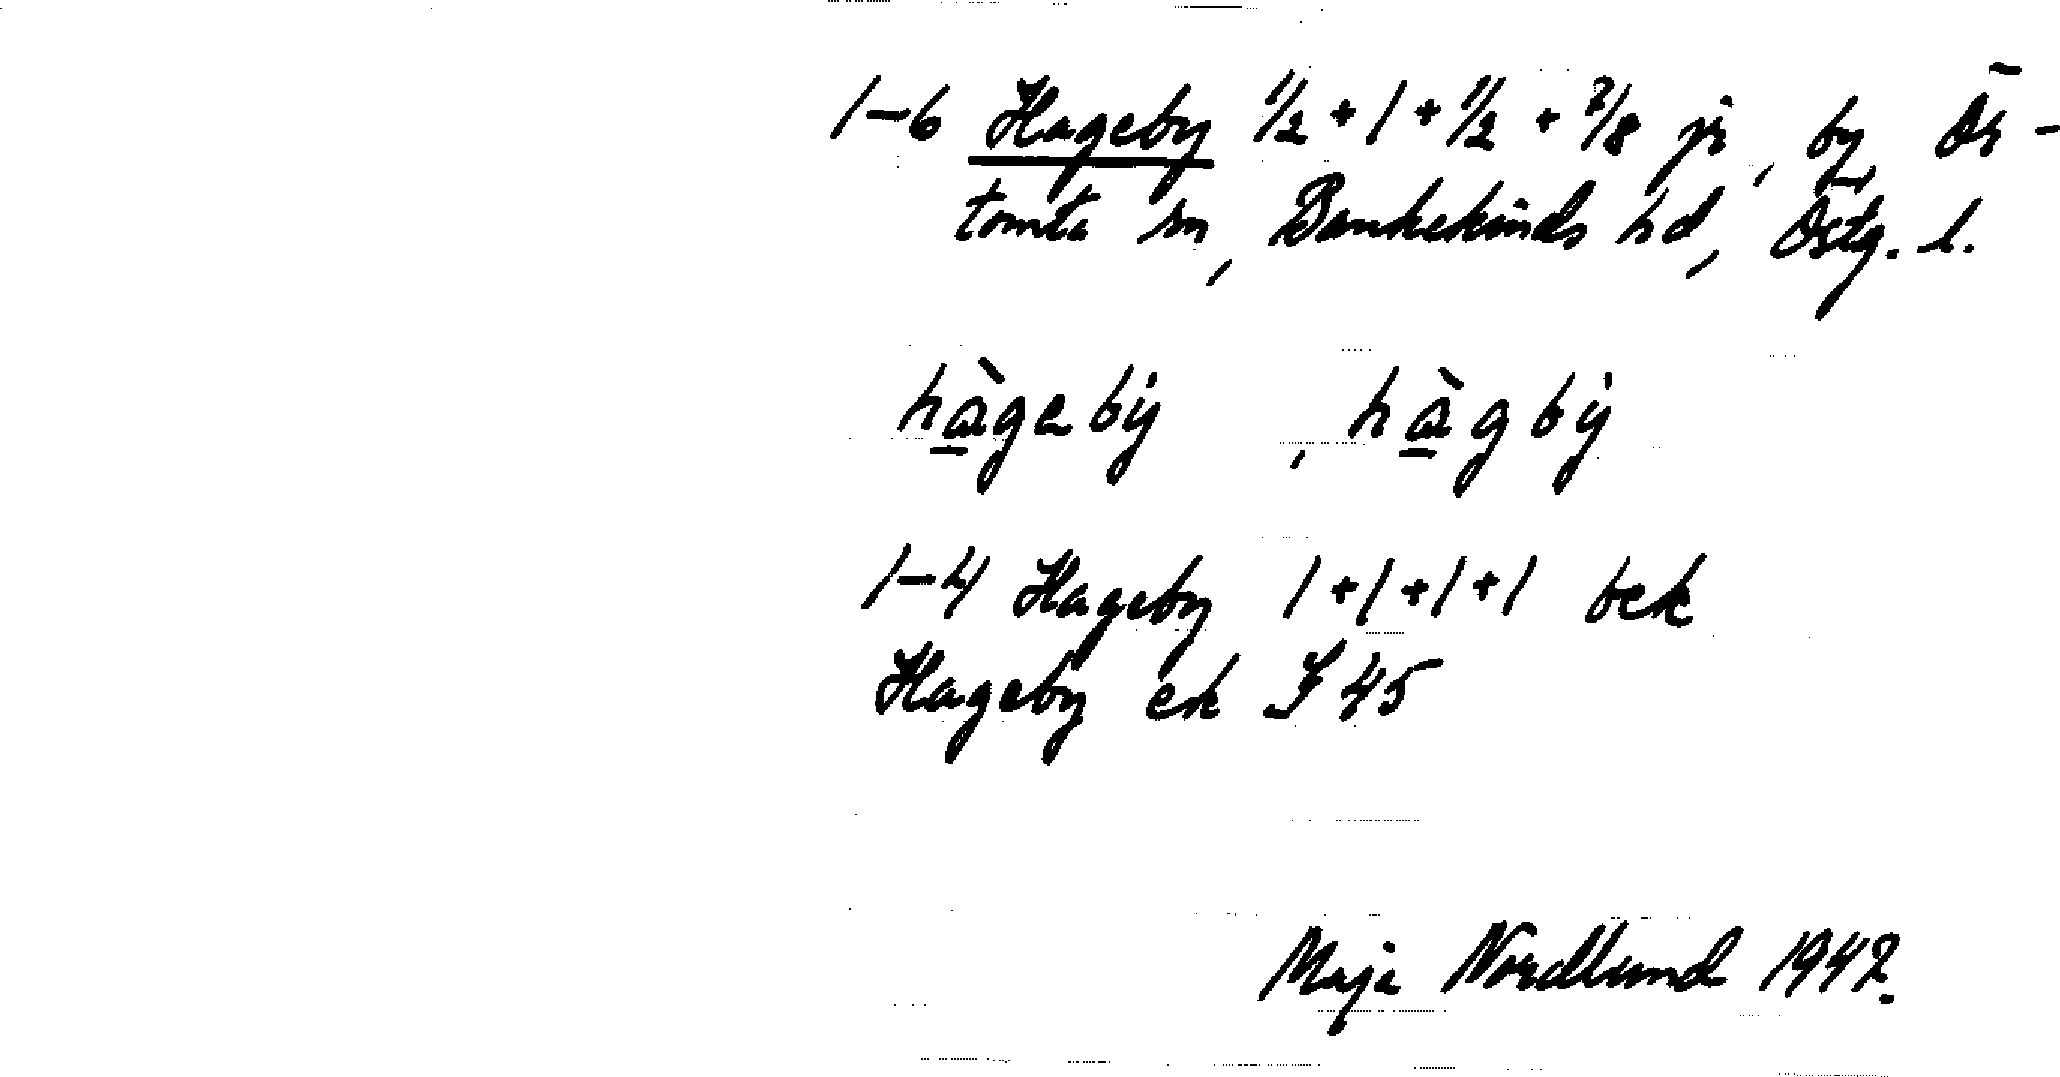 1-6 Hageby 1/2 + 1 + 1/2 + 7/8 jr, by, Ör-
tomta sn, Bankekinds hd, Östg. l.
hàgebẏ, hàgbẏ
1-4 Hageby 1+1+1+1 bek
Hageby ek J 45
Maja Nordlund 1942.